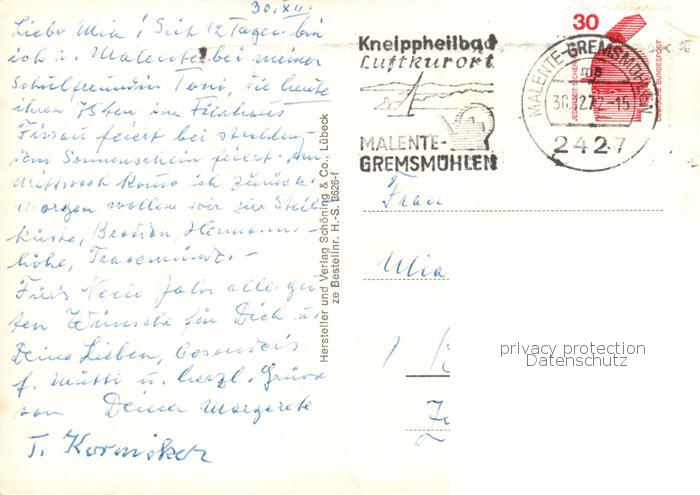 30. XII.
Liebe Mia! Seit 12 Tagen bin
ich i. Malente bei meiner
Schulfreundin Toni, die heute
ihren 75ten im Fährhaus
Fissau feiert bei strahlen-
dem Sonnenschein feiert. Am
Mittwoch komme ich zurück.
Morgen wollen wir zur Steil-
küste, Brodten, Hermanns-
höhe, Travemünde. -
Fürs Neue Jahr alle gu-
ten Wünsche für Dich u.
Deine Lieben, besonders
f. Mutti u. herzl. Grüsse
von Deiner Margarete
T.
Hersteller und Verlag Schöning & Co., Lübeck
ze Bestellnr. H.-S. 3626-f
Kneippheilbad
Luftkurort
MALENTE-
GREMSMÜHLEN
MALENTE-GREMSMÜHLEN
mp
30.12.72-15
2427
30
DEUTSCHE BUNDESPOST
Frau
Mia
privacy protection
Datenschutz